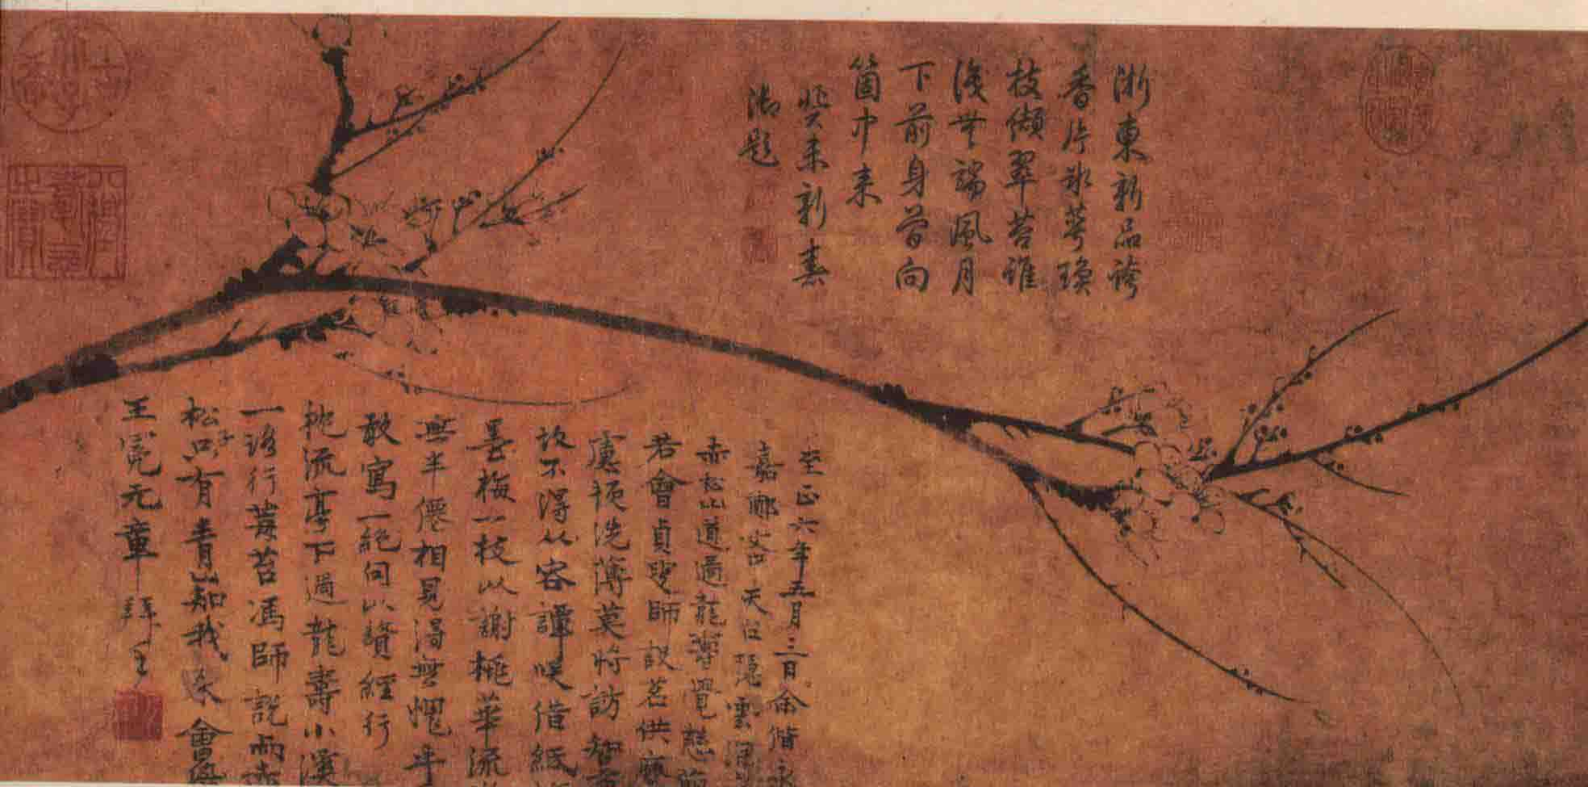 浙東新品誇
香片氷萼瓊
枝翠苔誰
無端風月
下前身曾向
箇中來
癸未新春
御題
至正六年五月三日余偕永
嘉鄭天台隱雲
赤松山道過龍壽覺慈
若會貞叟師設茗供
須洗薄莫將訪
故不得從容譚咲借紙
墨梅一枝以謝桃華流
無半僊相見渴無愧乎
敢寫一絕句以贊經行
桃流亭下過龍壽小溪
一路行莓苔馮師說
松只有青山知我來會
王冕元章拜手